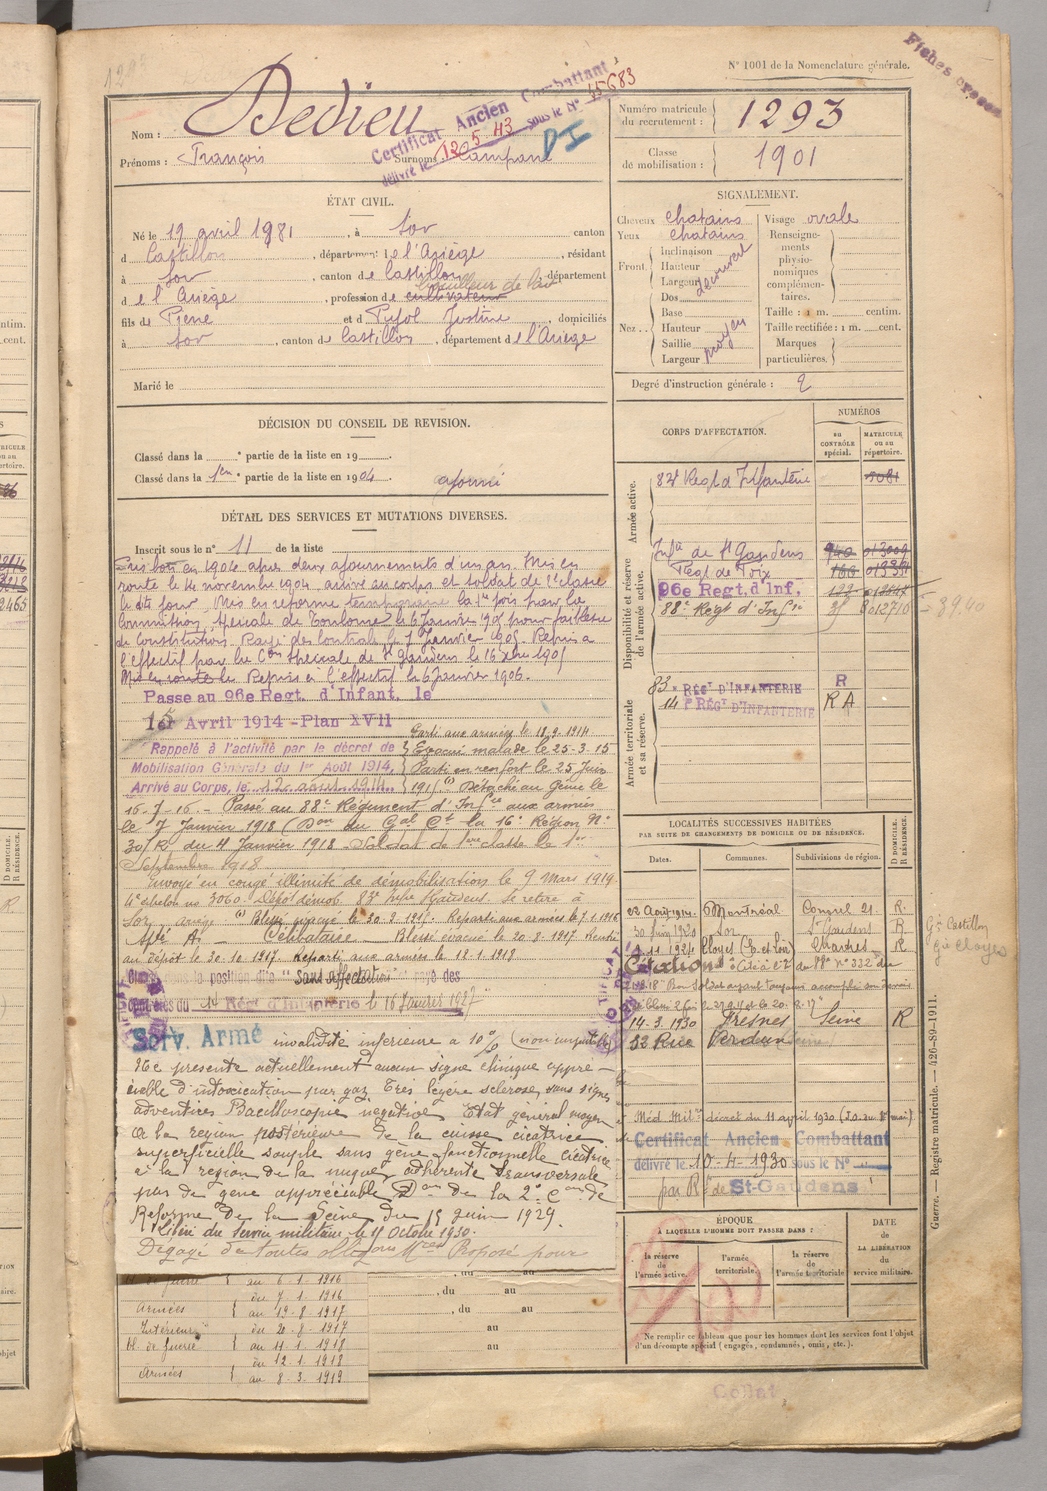 N° 1001 de la Nomenclature générale.
Nom : Dedieu
Prénoms : François Surnoms : Campané
Certificat Ancien Combattant
délivré le 12 5 43 sous le N° 15683
Numéro matricule du recrutement : 1293
Classe de mobilisation : 1901
ÉTAT CIVIL.
Né le 19 avril 1881, à Sor canton
d Castillon, département de l'Ariège, résidant
à Sor, canton de Castillon département
de l'Ariège, profession de cultivateur
fils de Pierre et d Pujol Justine, domiciliés
à Sor, canton de Castillon, département de l'Ariège
Marié le
SIGNALEMENT.
Cheveux chatains Visage ovale
Yeux chatains
Renseignements physionomiques complémentaires.
Front. Inclinaison
Hauteur
Largeur découvert
Nez. Dos
Base
Hauteur
Saillie
Largeur moyen
Taille : 1 m. centim.
Taille rectifiée : 1 m. cent.
Marques particulières.
Degré d'instruction générale : 2
DÉCISION DU CONSEIL DE REVISION.
Classé dans la e partie de la liste en 19
Classé dans la 1ere partie de la liste en 1904 ajourné
DÉTAIL DES SERVICES ET MUTATIONS DIVERSES.
Inscrit sous le n° 11 de la liste
Pris bon en 1904 après deux ajournements d'un an. Mis en
route le 14 novembre 1904, arrivé au corps et soldat de 2e classe
le dit jour, Mis en reforme temporaire la 1re fois par la
Commission spéciale de Toulouse le 6 Janvier 1905 pour faiblesse
de Constitution. Rayé des controles le 7 Janvier 1905. Repris à
l'effectif par la Con spéciale de St Gaudens le 16 xbre 1905
Mis en route le Repris à l'effectif le 6 Janvier 1906.
Passe au 96e Regt. d'Infant. le
1er Avril 1914 - Plan XVII
Rappelé à l'activité par le décret de
Mobilisation Générale du 1er Août 1914,
Arrivé au Corps, le 12 août 1914.
Parti aux armées le 18.9.1914
Evacué malade le 25-3-15
Parti en renfort le 25 Juin
1915 (1) Détaché au Génie le
15-7-16. - Passé au 88e Régiment d'Infie aux armées
le 7 Janvier 1918 (Don du Gal Ct la 16e Région N°
30/R du 4 Janvier 1918 - Soldat de 1ere classe le 1er
Septembre 1918
Envoyé en congé illimité de démobilisation le 9 Mars 1919.
4e échelon no 3060. Dépôt démob. 83e Infie St Gaudens. Se retire à
Sor, ariège. (1) Blessé, évacué le 30-8-1915. Reparti aux armées le 7.1.1916
Apte A. Célibataire Blessé évacué le 20-8-1917 Rentré
au dépôt le 30-10-1917. Reparti aux armées le 12-1-1918
la position dite "Sans affectation" et rayé des
contrôles du 14e Régt d'Infanterie le 16 Janvier 1927
Serv. Armé invalidité inférieure à 10% (non imputable)
Ne présente actuellement aucun signe clinique appré-
ciable d'intoxication par gaz. Très légère sclérose, sans signes
adventices Bacilloscopie négative Etat général moyen
A la région postérieure de la cuisse cicatrice
superficielle souple sans gène fonctionnelle cicatrice
à la région de la nuque adhérente transversale
pas de gène appréciable. Don de la 2e Con de
Réforme de la Seine du 15 juin 1929.
Libéré du service militaire le 15 Octobre 1930.
Dégagé de toutes obligons Mres Proposé pour
CORPS D'AFFECTATION.
NUMÉROS
au contrôle spécial.
matricule ou au répertoire.
Armée active.
83e Regt d'Infanterie
Disponibilité et réserve de l'armée active.
Infie de St Gaudens
Regt de Foix
96e Regt. d'Inf.
88e Regt d'Infie
Armée territoriale et sa réserve.
83e RÉGt D'INFANTERIE R
14e RÉGt D'INFANTERIE R A
LOCALITÉS SUCCESSIVES HABITÉES
PAR SUITE DE CHANGEMENTS DE DOMICILE OU DE RÉSIDENCE.
D DOMICILE. R RÉSIDENCE.
Dates. Communes. Subdivisions de région.
22 Août 1912 Montréal Consul 21. R
30 Juin 1920 Sor St Gaudens R
11 1924 Cloyes (E. et Loir) Chartres R
Gie Castillon
Gie Cloyes
Citation
14.3.1930 Fresnes Seine R
32 Rue Verdun (Seine)
Méd Milre décret du 11 avril 1930 (J.O. du 8 mai)
Certificat Ancien Combattant
délivré le 10-4-1930 sous le N°
par R. de St-Gaudens
ÉPOQUE
À LAQUELLE L'HOMME DOIT PASSER DANS :
la réserve de l'armée active. l'armée territoriale. la réserve de l'armée territoriale
DATE DE LA LIBÉRATION du service militaire.
Ne remplir ce tableau que pour les hommes dont les services font l'objet
d'un décompte spécial (engagés, condamnés, omis, etc.).
Int. de guerre au 6-1-1916
du 7-1-1916
Armées au 19-8-1917
Intérieur du 20-8-1917
Int. de guerre au 11-1-1918
du 12-1-1918
Armées au 8-3-1919
Guerre. — Registre matricule. — 426-89-1911.